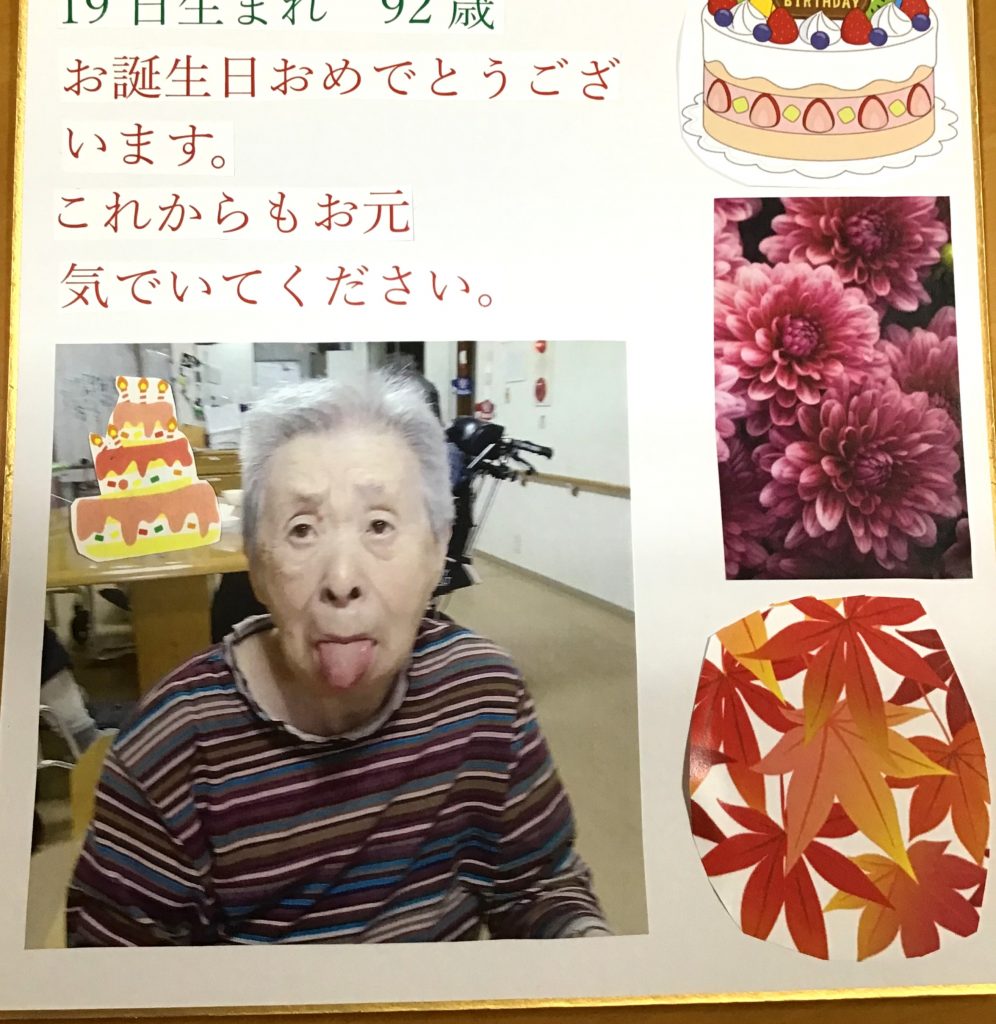 19日生まれ　92歳
お誕生日おめでとうござ
います。
これからもお元
気でいてください。
BIRTHDAY